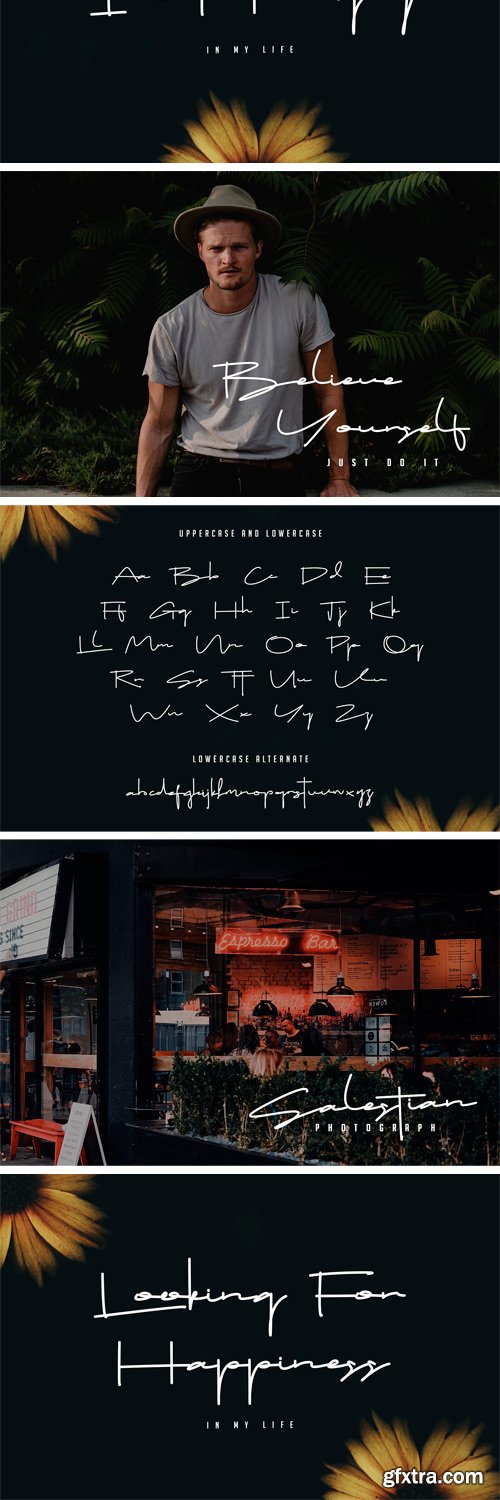 IN MY LIFE
Believe
Yourself
JUST DO IT
UPPERCASE AND LOWERCASE
Aa Bb Cc Dd Ee
Ff Gg Hh Ii Jj Kk
Ll Mm Nn Oo Pp Qq
Rr Ss Tt Uu Vv
Ww Xx Yy Zz
LOWERCASE ALTERNATE
abcdefghijklmnopqrstuvwxyz
GRIND
SINCE
Espresso Bar
Salestian
PHOTOGRAPH
Looking For
Happiness
IN MY LIFE
gfxtra.com